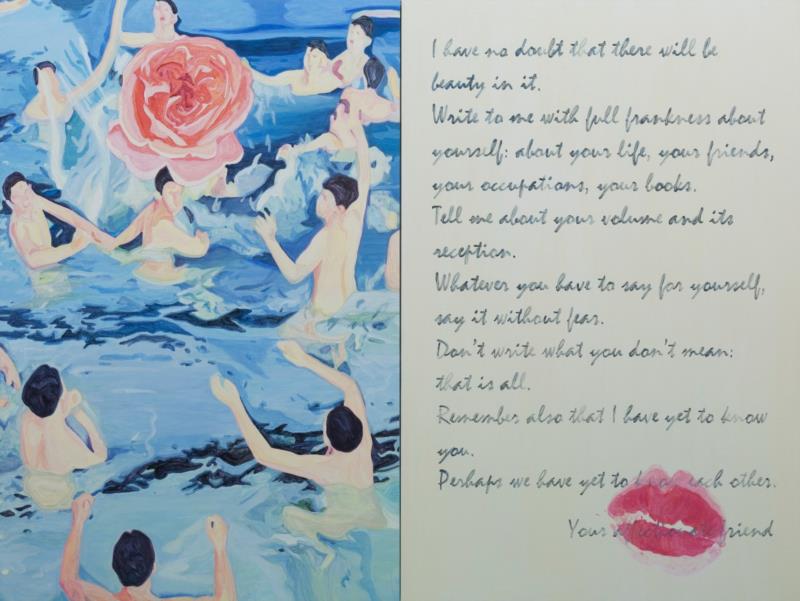 I have no doubt that there will be
beauty in it.
Write to me with full frankness about
yourself: about your life, your friends,
your occupations, your books.
Tell me about your volume and its
reception.
Whatever you have to say for yourself,
say it without fear.
Don't write what you don't mean:
that is all.
Remember also that I have yet to know
you.
Perhaps we have yet to know each other.
Your affectionate friend